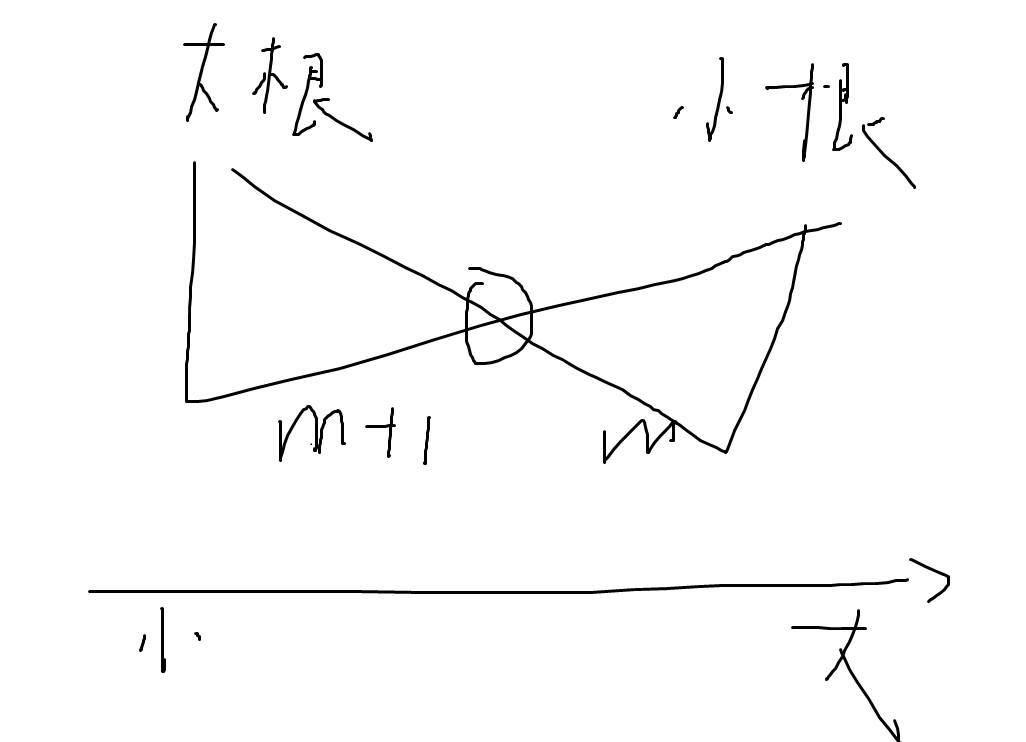 大根 小根
m+1 m
小 大